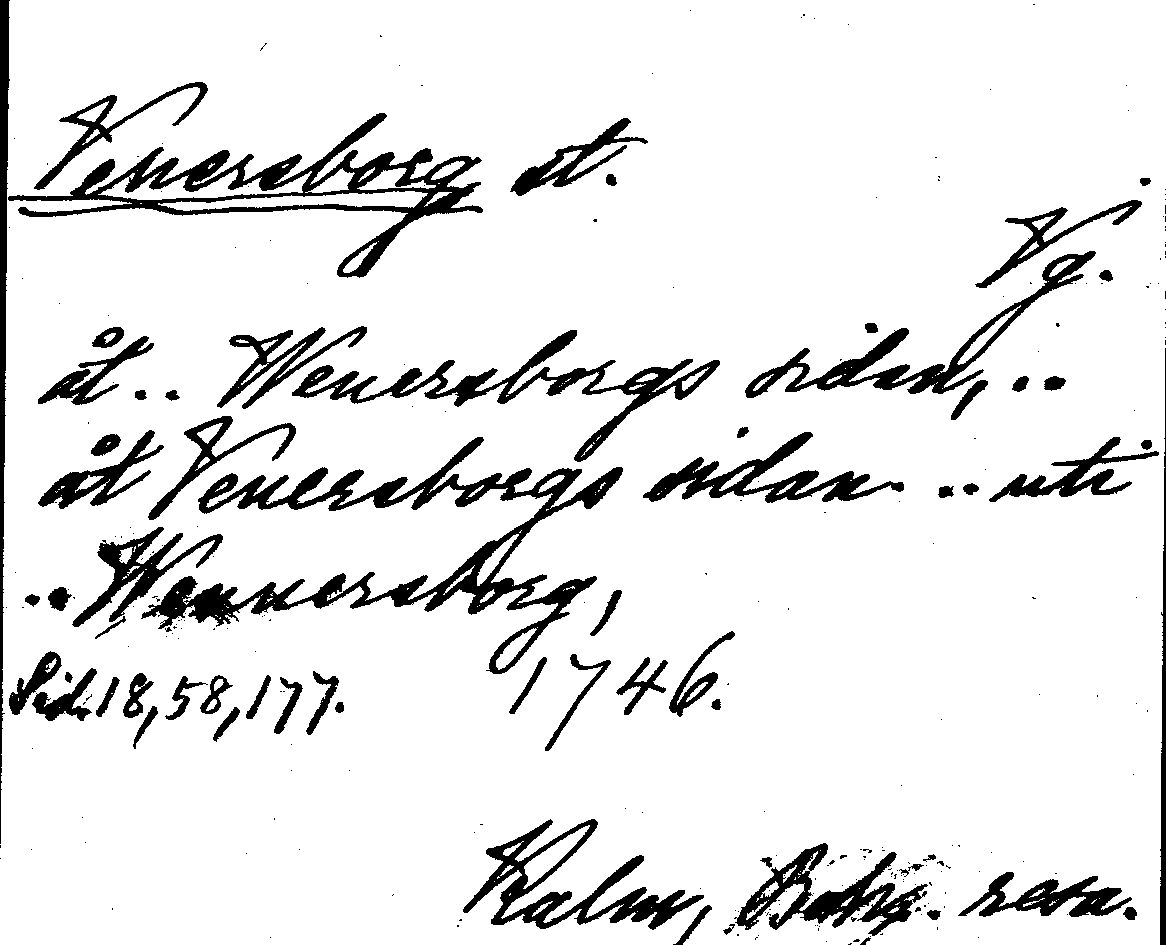 Venersborg st.
Vg.
åt .. Wenersborgs sidan, ..
åt Venersborgs sidan. .. uti
.. Wennersborg,
Sid. 18, 58, 177. 1746.
Kalm, Bohg. resa.